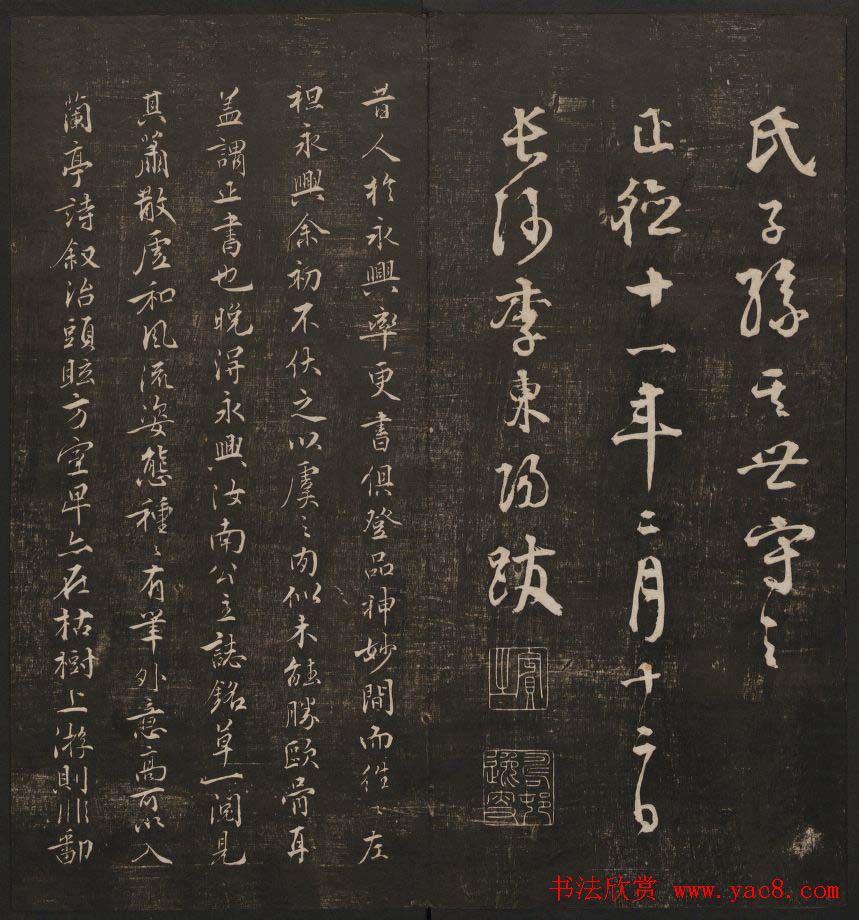 氏子孫其世守之
正德十一年二月十二日
長沙李東陽跋
賓之
昔人於永興率更書俱登品神妙間而往往左
袒永興余初不伏之以虞之肉似未能勝歐骨耳
蓋謂正書也晚得永興汝南公主誌銘草一閱見
其蕭散虛和風流姿態種種有筆外意高可以入
蘭亭詩叙治頭眩方室卑亦在枯樹上游則非鄱
书法欣赏 www.yac8.com